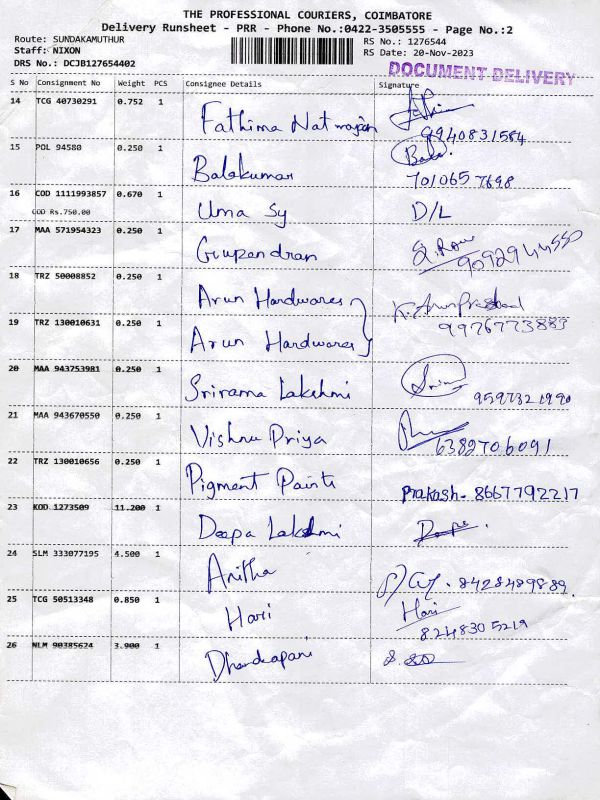 THE PROFESSIONAL COURIERS, COIMBATORE
Delivery Runsheet - PRR - Phone No.:0422-3505555 - Page No.:2
Route: SUNDAKAMUTHUR RS No.: 1276544
Staff: NIXON RS Date: 20-Nov-2023
DRS No.: DCJB127654402
DOCUMENT DELIVERY
S No Consignment No Weight PCS Consignee Details Signature
14 TCG 40730291 0.752 1 Fathima Natrajan
9940831584
15 POL 94580 0.250 1 Balakumar Bala.
701065 7698
16 COD 1111993857 0.670 1 Uma Sy D/L
COD Rs.750.00
17 MAA 571954323 0.250 1
9092944550
18 TRZ 50008852 0.250 1 Arun Hardwares
9976773883
19 TRZ 130010631 0.250 1 Arun Hardwares
20 MAA 943753981 0.250 1 Srirama Lakshmi
9597321990
21 MAA 943670550 0.250 1 Vishnu Priya
6382706091
22 TRZ 130010656 0.250 1 Pigment Paints Prakash- 8667792217
23 KOD 1273509 11.200 1 Deepa Lakshmi Deepa.
24 SLM 333077195 4.500 1 Anitha
8428489889.
25 TCG 50513348 0.850 1 Hari Hari
8248305219
26 NLM 90385624 3.900 1 Dhandapani